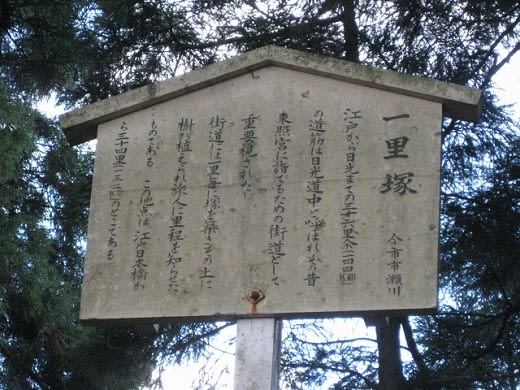 一里塚
今市市瀬川
江戸から日光までの三十六里余一四四㎞
の道筋は日光道中と呼ばれその昔
東照宮に詣でるための街道として
重要視された
街道には一里毎に塚を築きその上に
樹が植えられ旅人に里程を知らせた
ものである この地点は江戸日本橋か
ら三十四里一三二㎞のところである